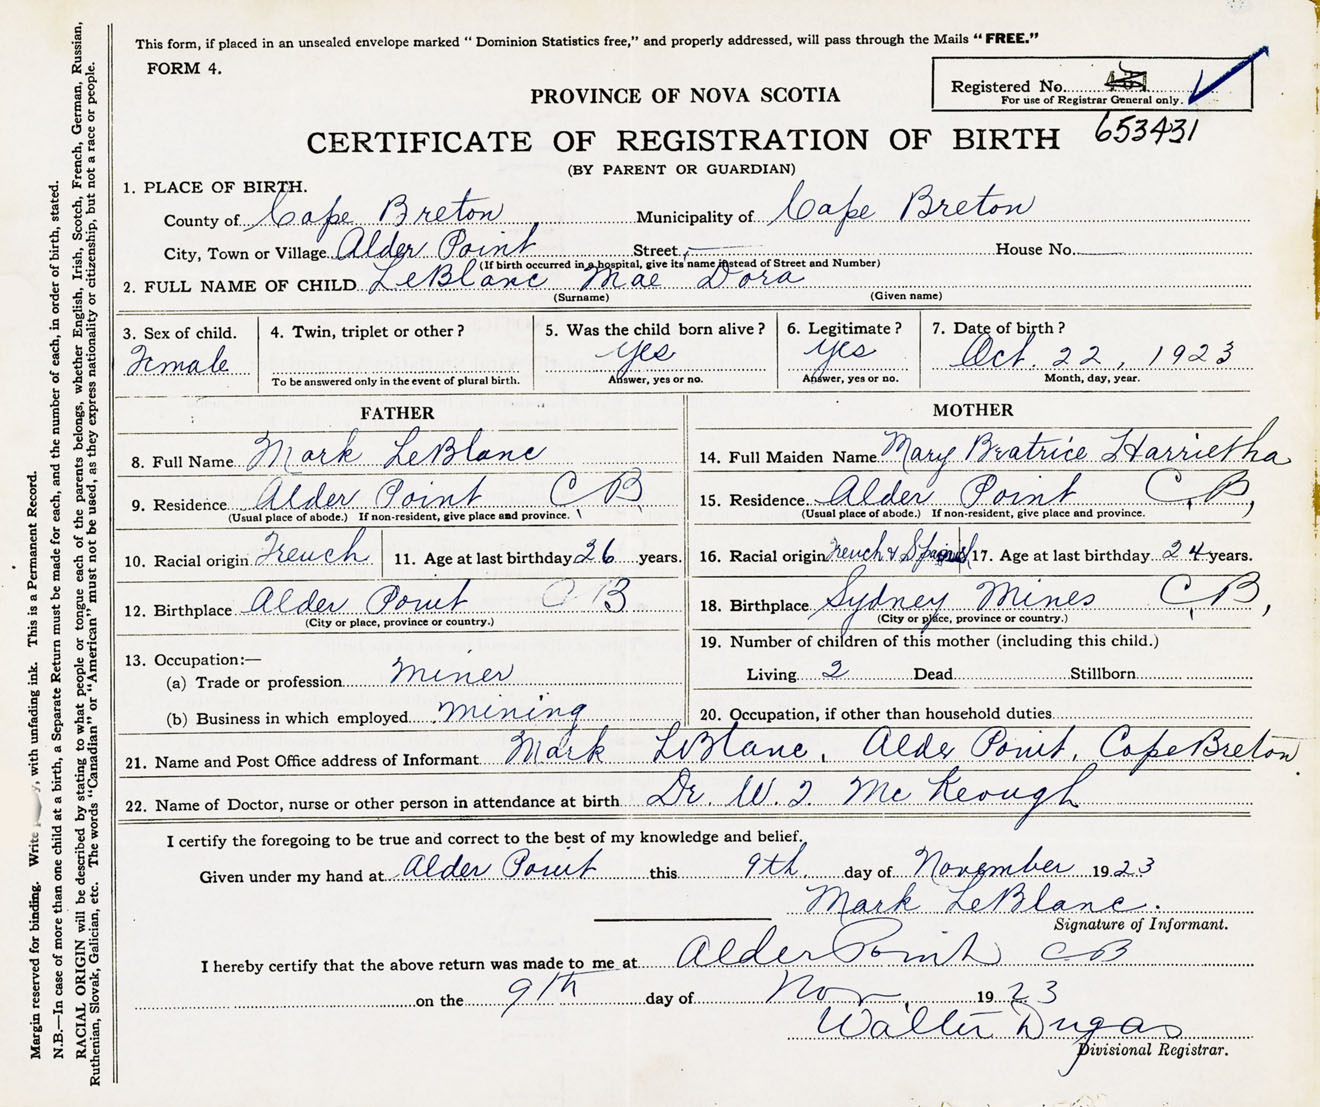 This form, if placed in an unsealed envelope marked " Dominion Statistics free," and properly addressed, will pass through the Mails "FREE."
FORM 4.
Registered No.
For use of Registrar General only.
653431
PROVINCE OF NOVA SCOTIA
CERTIFICATE OF REGISTRATION OF BIRTH
(BY PARENT OR GUARDIAN)
1. PLACE OF BIRTH.
County of Cape Breton Municipality of Cape Breton
City, Town or Village Alder Point Street House No.
(If birth occurred in a hospital, give its name instead of Street and Number)
2. FULL NAME OF CHILD LeBlanc Mae Dora
(Surname) (Given name)
3. Sex of child. 4. Twin, triplet or other? 5. Was the child born alive? 6. Legitimate? 7. Date of birth?
Female yes yes Oct. 22, 1923
To be answered only in the event of plural birth. Answer, yes or no. Answer, yes or no. Month, day, year.
FATHER
8. Full Name Mark LeBlanc
9. Residence Alder Point C B
(Usual place of abode.) If non-resident, give place and province.
10. Racial origin French 11. Age at last birthday 26 years.
12. Birthplace Alder Point C B
(City or place, province or country.)
13. Occupation:—
(a) Trade or profession miner
(b) Business in which employed mining
MOTHER
14. Full Maiden Name Mary Beatrice Harrietha
15. Residence Alder Point C. B,
(Usual place of abode.) If non-resident, give place and province.
16. Racial origin French & Spanish 17. Age at last birthday 24 years.
18. Birthplace Sydney Mines C. B,
(City or place, province or country.)
19. Number of children of this mother (including this child.)
Living 2 Dead Stillborn
20. Occupation, if other than household duties
21. Name and Post Office address of Informant Mark LeBlanc, Alder Point, Cape Breton.
22. Name of Doctor, nurse or other person in attendance at birth Dr. W. J. McKeough
I certify the foregoing to be true and correct to the best of my knowledge and belief.
Given under my hand at Alder Point this 9th day of November 1923
Mark LeBlanc.
Signature of Informant.
I hereby certify that the above return was made to me at Alder Point CB
on the 9th day of Nov. 1923
Walter Dugas
Divisional Registrar.
Margin reserved for binding. Write , with unfading ink. This is a Permanent Record.
N.B.—In case of more than one child at a birth, a Separate Return must be made for each, and the number of each, in order of birth, stated.
RACIAL ORIGIN will be described by stating to what people or tongue each of the parents belongs, whether English, Irish, Scotch, French, German, Russian,
Ruthenian, Slovak, Galician, etc. The words "Canadian" or "American" must not be used, as they express nationality or citizenship, but not a race or people.